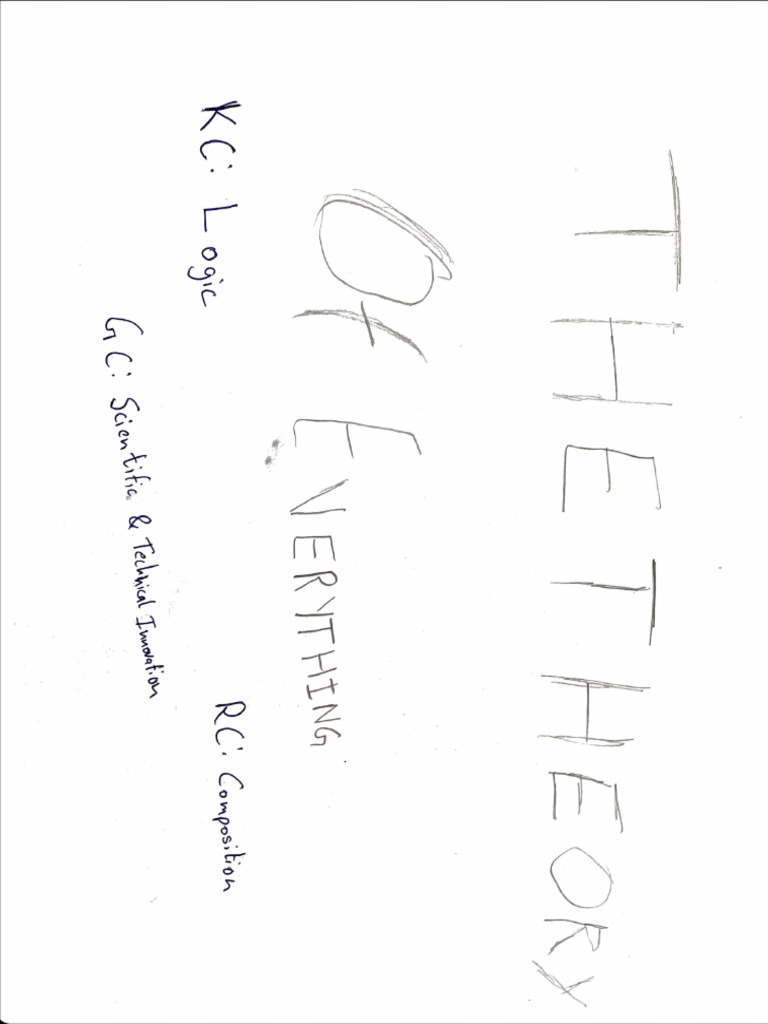 THE THEORY
Of EVERYTHING
KC: Logic
RC: Composition
GC: Scientific & Technical Innovation